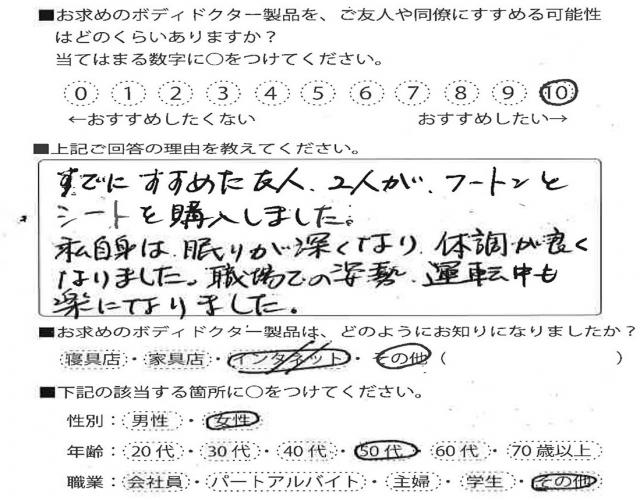 ■お求めのボディドクター製品を、ご友人や同僚にすすめる可能性
はどのくらいありますか?
当てはまる数字に○をつけてください。
0 1 2 3 4 5 6 7 8 9 10
←おすすめしたくない おすすめしたい→
■上記ご回答の理由を教えてください。
すでにすすめた友人、2人が、フートンと
シートを購入しました。
私自身は、眠りが深くなり、体調が良く
なりました。職場での姿勢、運転中も
楽になりました。
■お求めのボディドクター製品は、どのようにお知りになりましたか?
寝具店・家具店・インタネット・その他( )
■下記の該当する箇所に○をつけてください。
性別:男性・女性
年齢:20代・30代・40代・50代・60代・70歳以上
職業:会社員・パートアルバイト・主婦・学生・その他